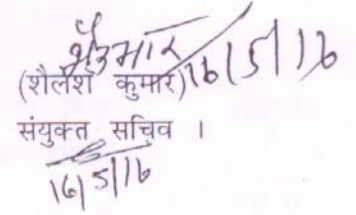 16/5/16
(शैलेश कुमार)
संयुक्त सचिव ।
16/5/16